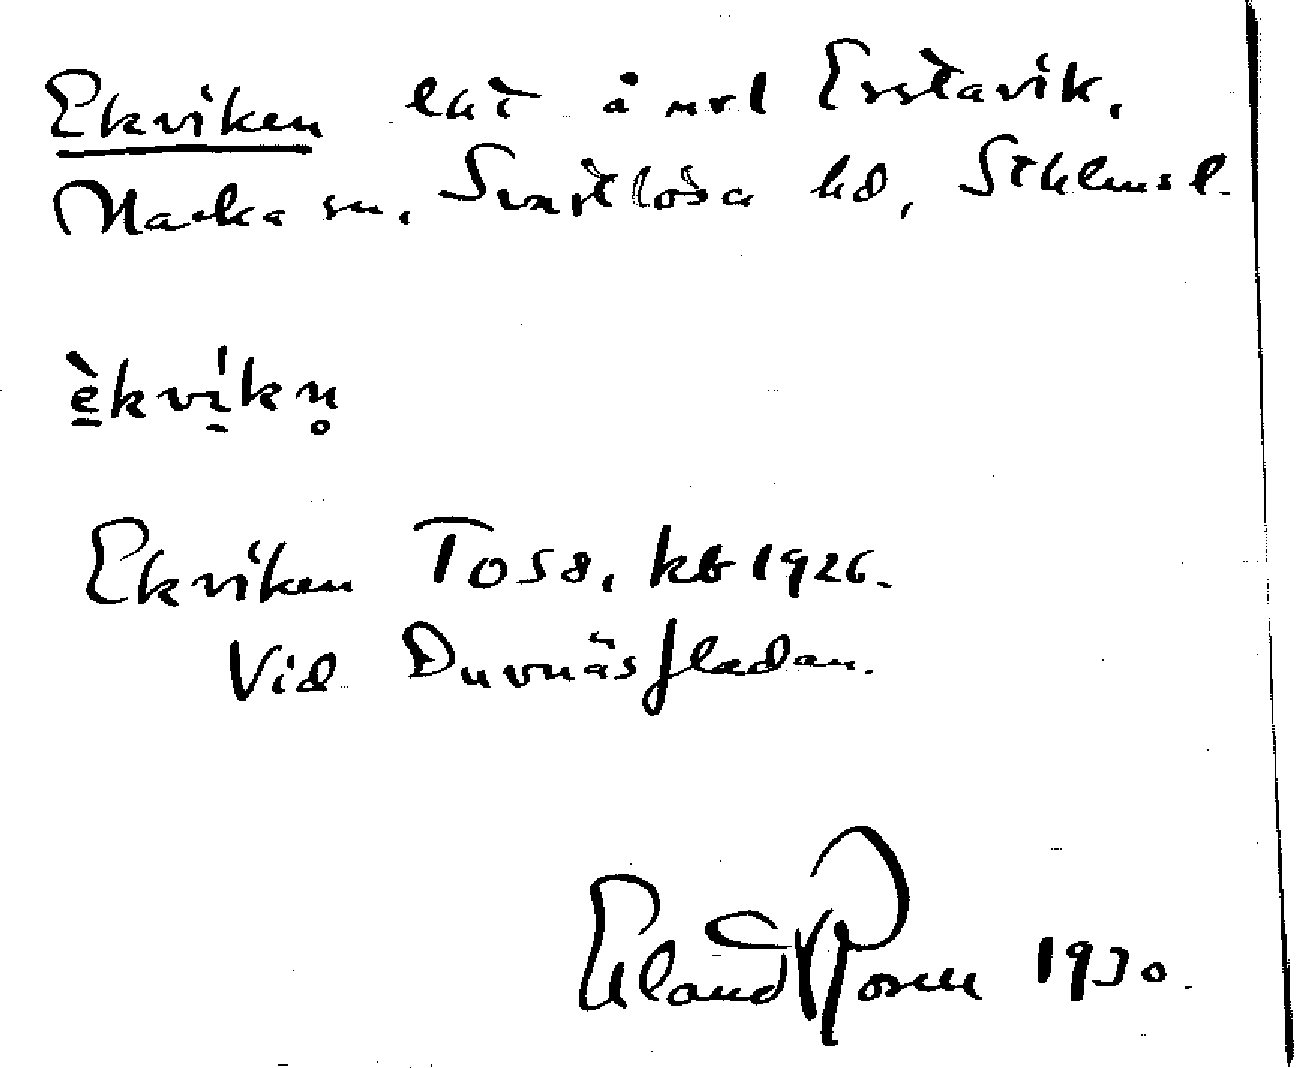 Ekviken lht å mrl Erstavik,
Nacka sn, Svartlösa hd, Sthlms l.
èkvi̱kn̥
Ekviken Tosd, kb 1926.
Vid Duvnäsfladan.
Erland Rosell 1930.